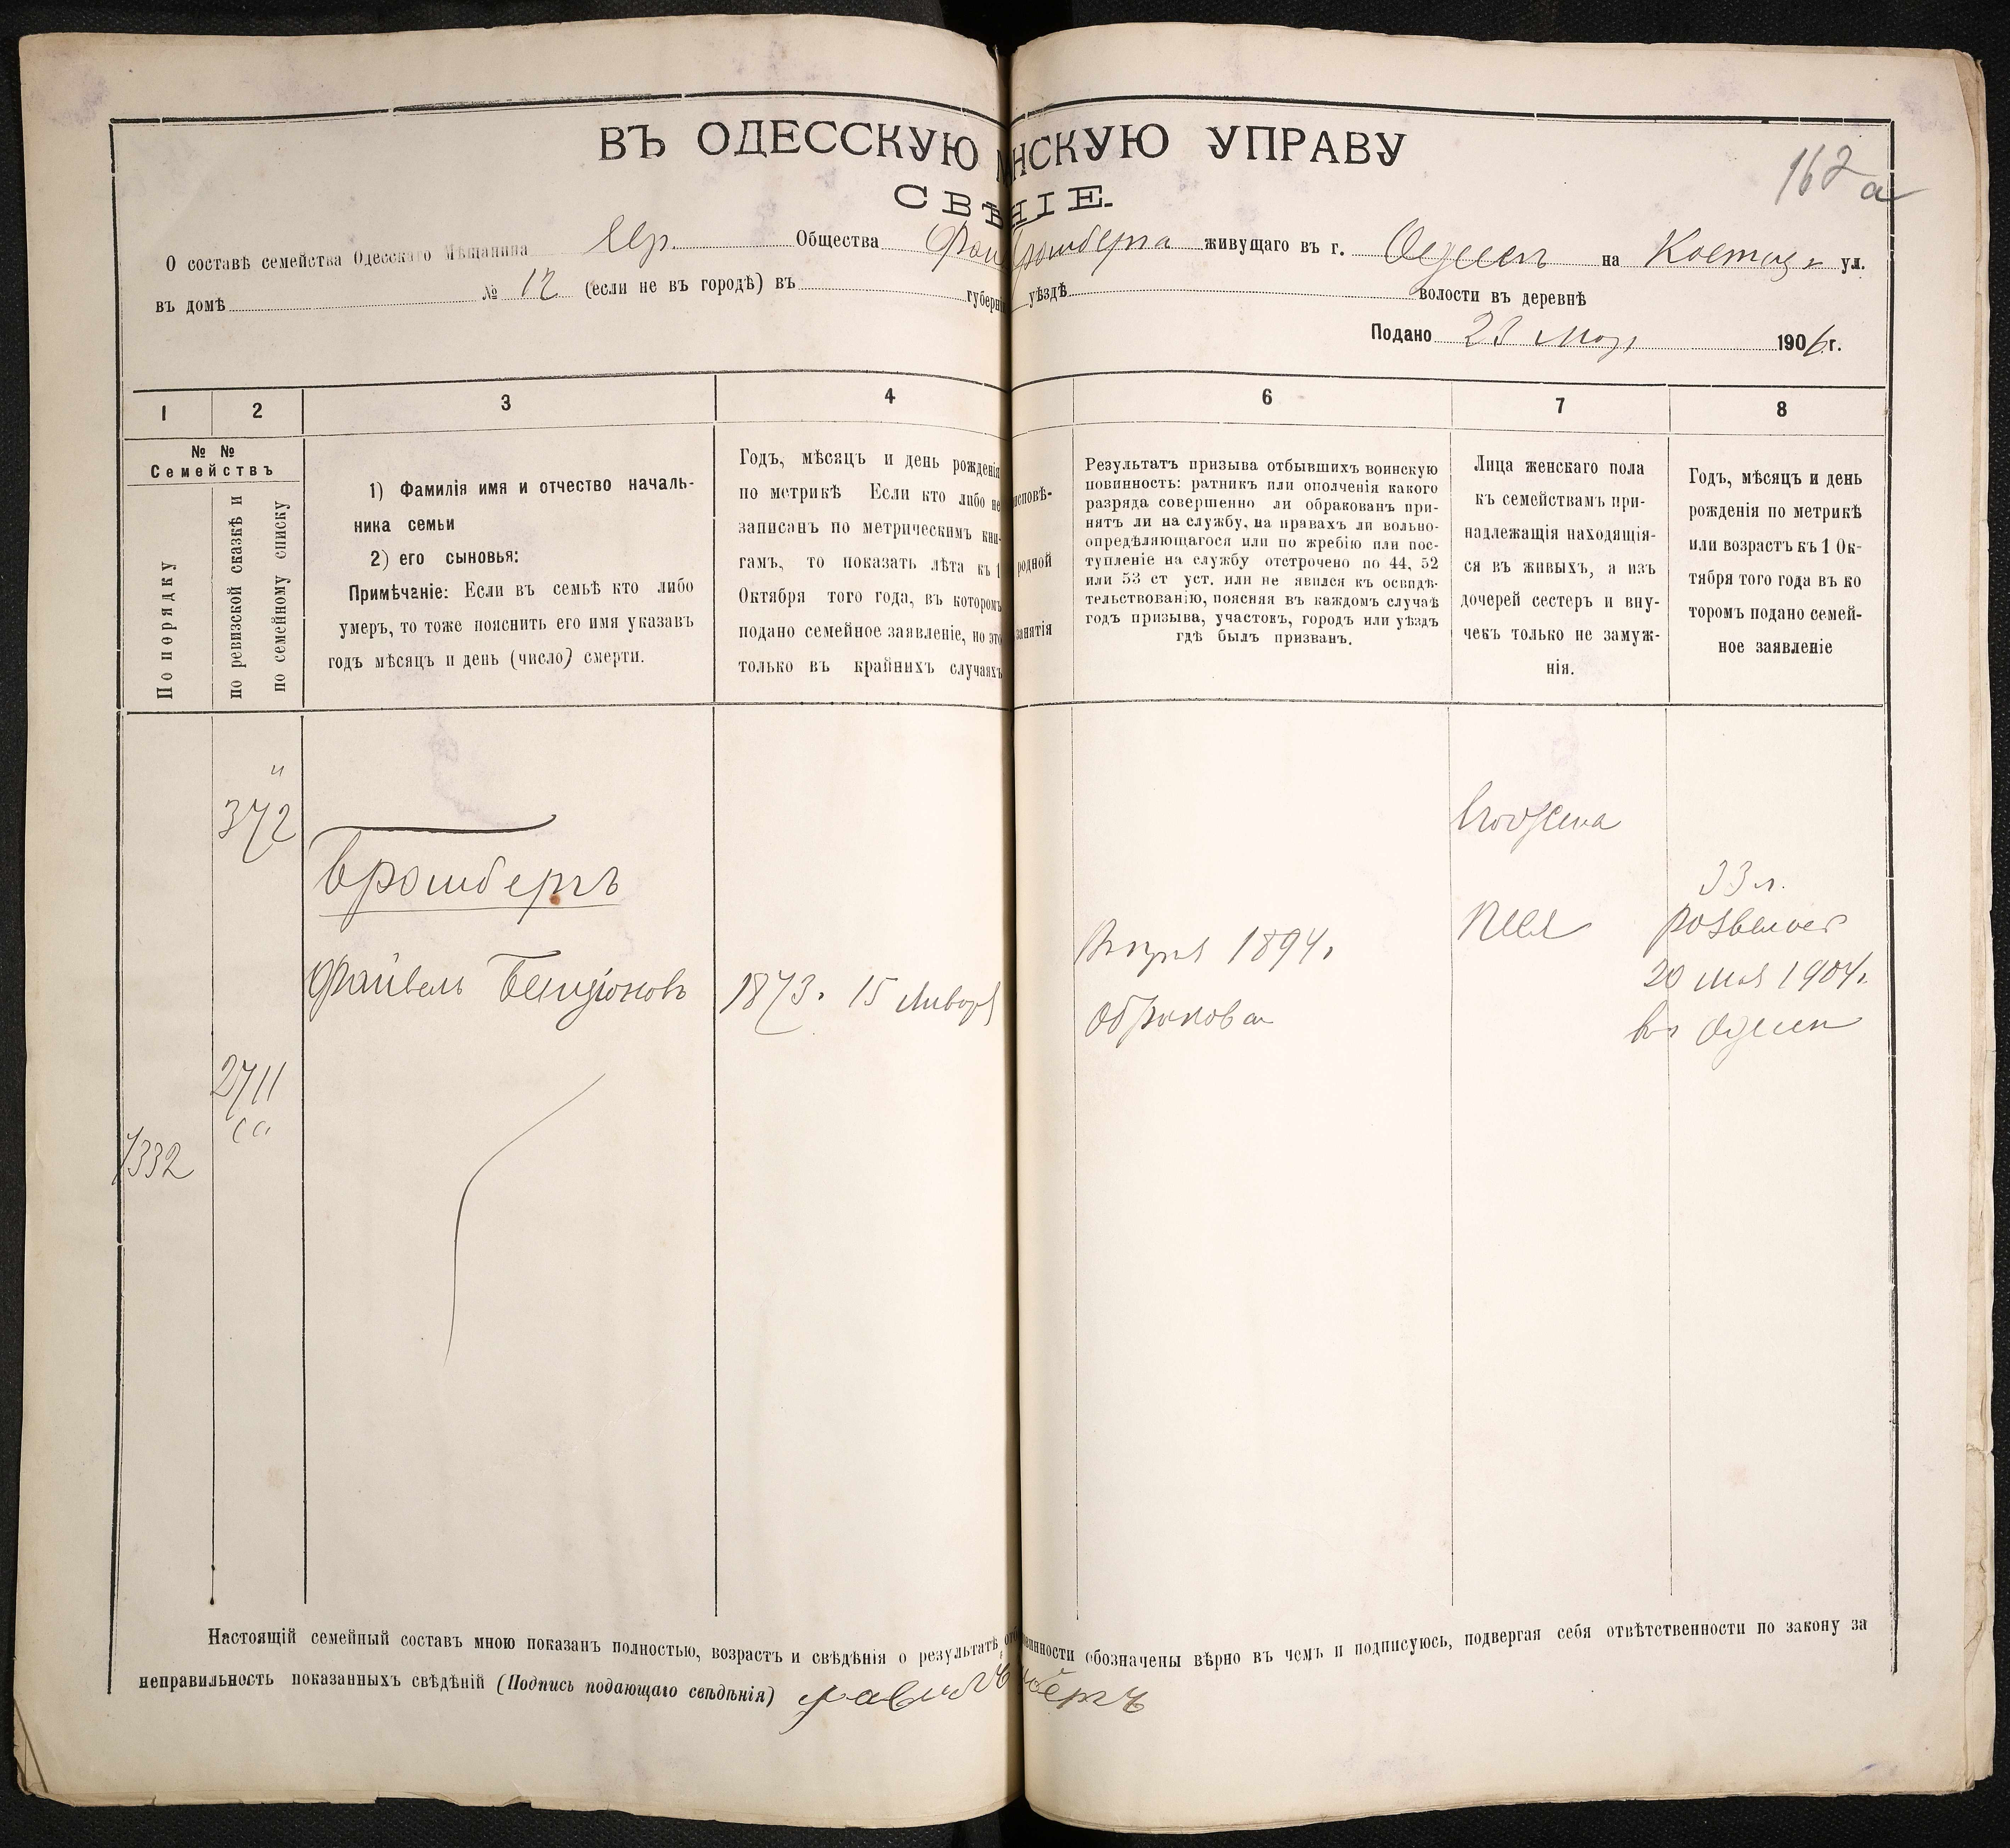 ВЪ ОДЕССКУЮ НСКУЮ УПРАВУ
СВѢНІЕ.
162 а
О составѣ семейства Одесскаго Мѣщанина Евр. Общества живущаго въ г. Одессѣ на ул.
въ домѣ № 12 (если не въ городѣ) въ губерніи уѣздѣ волости въ деревнѣ
Подано 23 1906 г.
1 2 3 4 6 7 8
№ №
Семействъ
По порядку
по ревизской сказкѣ и
по семейному списку
1) Фамилія имя и отчество началь-
ника семьи
2) его сыновья:
Примѣчаніе: Если въ семьѣ кто либо
умеръ, то тоже пояснить его имя указавъ
годъ мѣсяцъ и день (число) смерти.
Годъ, мѣсяцъ и день рожденія
по метрикѣ Если кто либо не
записанъ по метрическимъ кни-
гамъ, то показать лѣта къ 1
Октября того года, въ которомъ
подано семейное заявленіе, но это
только въ крайнихъ случаяхъ
исповѣ-
родной
занятія
Результатъ призыва отбывшихъ воинскую
повинность: ратникъ или ополченія какого
разряда совершенно ли обракованъ при-
нятъ ли на службу, на правахъ ли вольно-
опредѣляющагося или по жребію или пос-
тупленіе на службу отстрочено по 44, 52
или 53 ст уст. или не явился къ освидѣ-
тельствованію, поясняя въ каждомъ случаѣ
годъ призыва, участокъ, городъ или уѣздъ
гдѣ былъ призванъ.
Лица женскаго пола
къ семействамъ при-
надлежащія находящія-
ся въ живыхъ, а изъ
дочерей сестеръ и вну-
чекъ только не замуж-
нія.
Годъ, мѣсяцъ и день
рожденія по метрикѣ
или возрастъ къ 1 Ок-
тября того года въ ко
торомъ подано семей-
ное заявленіе
372
Бромбергъ
Файвель Бенціоновъ
1873. 15 Января
1894г
Обракован
жена
33 л.
20 мая 1904г.
въ Одессѣ
2711
7332
Настоящій семейный составъ мною показанъ полностью, возрастъ и свѣдѣнія о результатѣ от винности обозначены вѣрно въ чемъ и подписуюсь, подвергая себя отвѣтственности по закону за
неправильность показанныхъ свѣдѣній (Подпись подающаго свѣдѣнія)